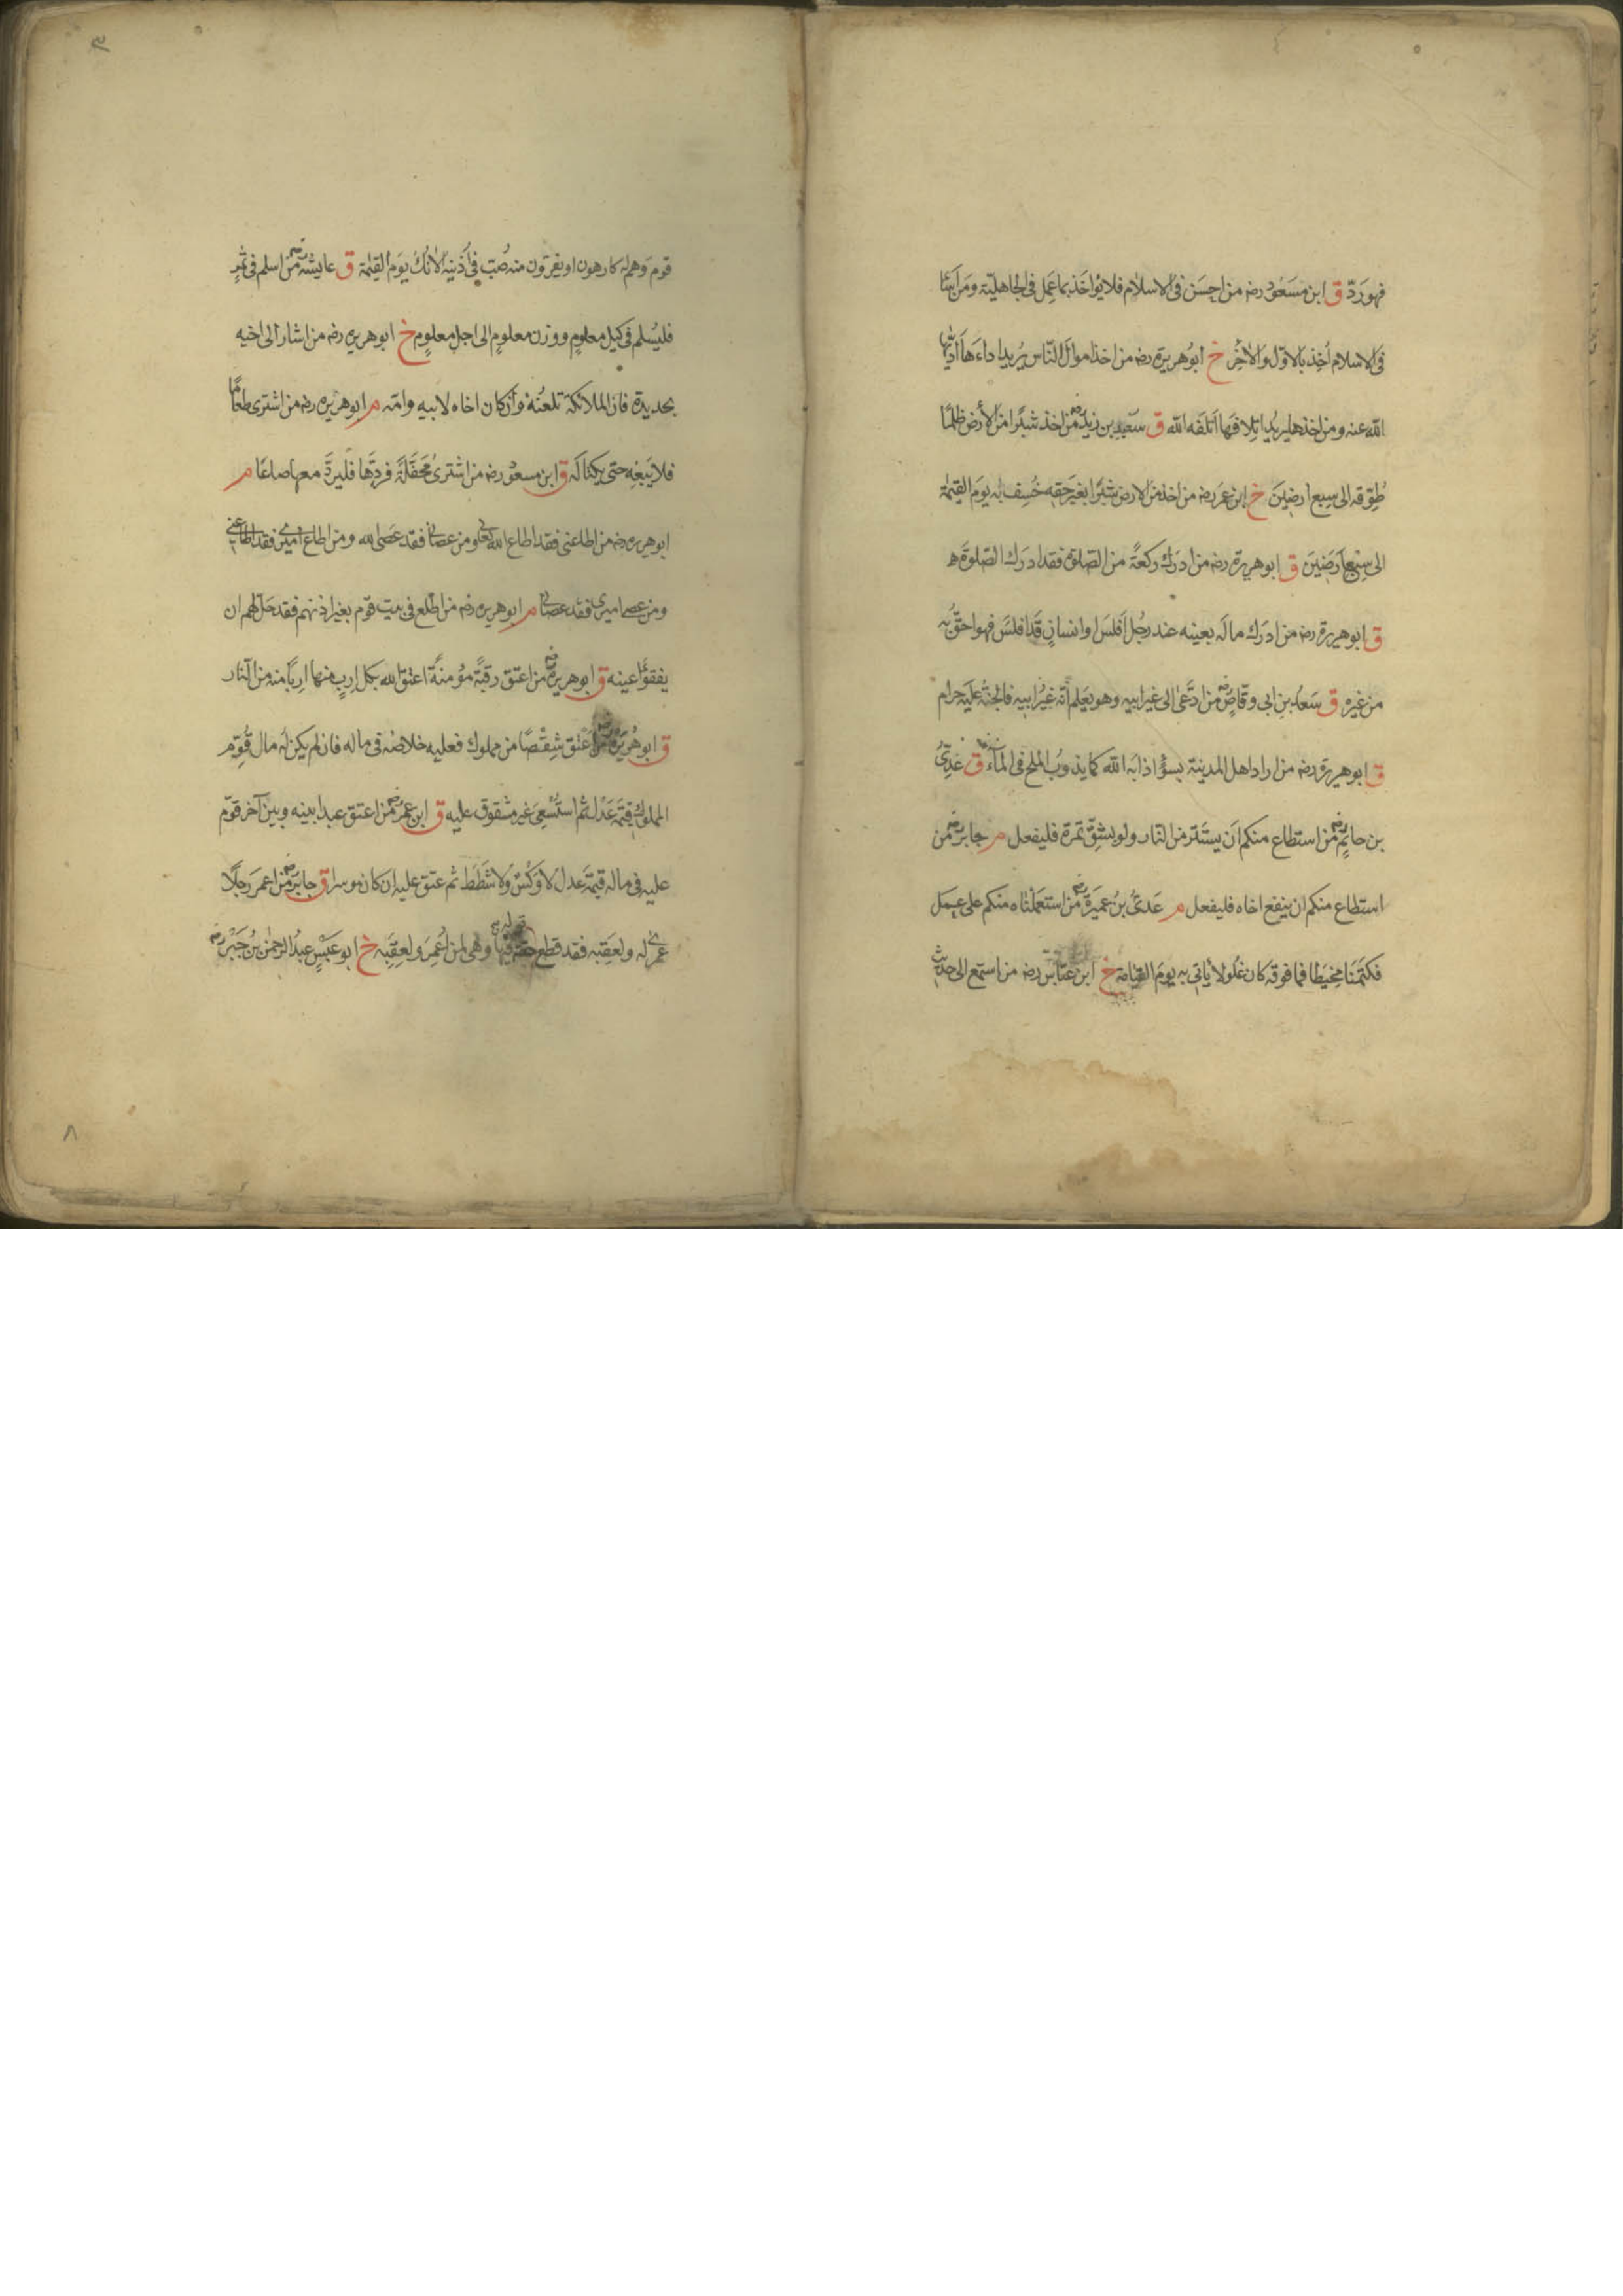 فهو ردّ ق ابن مسعود رضه من احسن فى الاسلام فلا يؤاخذ بما عمل فى الجاهليّة ومن اسآء
فى الاسلام اُخِذ بالاوّل والاٰخِر خ ابو هريرة رضه من اخذ اموال النّاس يريد اداءها ادّاها
الله عنه ومن اخذها يريد اتلافها اتلفه الله ق سعيد بن زيد رضه من اخذ شبرًا من الأرض ظلمًا
طُوِّقه الى سبع ارضين خ ابن عمر رضه من اخذ من الارض شبرًا بغير حقه خُسِف به يوم القيٰمة
الى سبع ارضين ق ابو هريرة رضه من ادرك ركعة من الصّلوة فقد ادرك الصّلوة ه
ق ابو هريرة رضه من ادرك ماله بعينه عند رجُل افلس او انسان قد افلس فهو احقّ به
من غيره ق سعد بن ابى وقاص رضه من ادّعى الى غير ابيه وهو يعلم انّه غير ابيه فالجنّة عليه حرام
ق ابو هريرة رضه من اراد اهل المدينة بسوء اذابه الله كما يذوب الملح فى المآء ق عدىّ
بن حاتم رضه من استطاع منكم ان يستتر من النّار ولو بشقّ تمرة فليفعل م جابر رضه من
استطاع منكم ان ينفع اخاه فليفعل م عدىّ بن عميرة رضه من استعملناه منكم على عمل
فكتمنا مخيطا فما فوقه كان غلولا يأتى به يوم القيامة خ ابن عبّاس رضه من استمع الى حديث
٣
قوم وهم له كارهون او يفرّون منه صُبّ فى اُذنيه الاٰنُك يوم القيٰمة ق عايشة رضه من اسلم فى ثمر
فليُسلم فى كيل معلوم ووزن معلوم الى اجل معلوم خ ابو هريره رضه من اشار الى اخيه
بحديدة فان الملائكة تلعنُه وان كان اخاه لابيه وامّه م ابو هريره رضه من اشترى طعامًا
فلا يبعه حتى يكتاله ق ابن مسعود رضه من اشترى محفّلة فردّها فليردّ معها صاعًا م
ابو هريره رضه من اطاعنى فقد اطاع الله تعالى ومن عصانى فقد عصى الله ومن اطاع اميرى فقد اطاعنى
ومن عصى اميرى فقد عصانى م ابو هريره رضه من اطّلع فى بيت قوم بغير اذنهم فقد حلّ لهم ان
يفقؤا عينه ق ابو هريرة رضه من اعتق رقبةً مؤمنةً اعتق الله بكل اربٍ منها اربًا منه من النار
ق ابو هُريرة رضه من اعتق شِقْصًا من مملوك فعليه خلاصُه فى ماله فان لم يكن له مال قُوِّم
المملوك قيمة عدل ثم استُسعى غير مشقوق عليه ق ابن عمر رضه من اعتق عبدا بينه وبين آخر قوّم
عليه فى ماله قيمة عدل لا وكس ولا شطط ثم عتق عليه ان كان موسرا ق جابر رضه من اعمر رجلًا
عمرى له ولعقبه فقد قطع قوله حقّه فيها وهى لمن اُعمر ولعقبه خ ابو عبس عبد الرحمٰن بن جبر رضه
٨